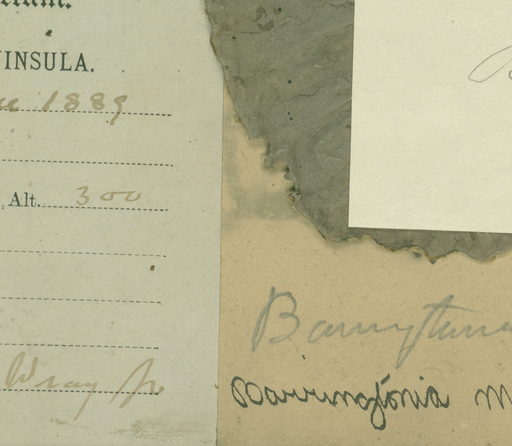 INSULA.
1889
Alt. 300
Wray Jr
Barringtonia
Barringtonia M